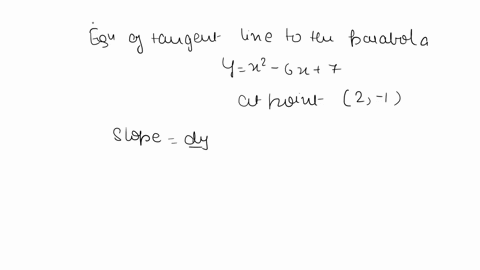 Eqn of tangent line to the parabola
y = x² - 6x + 7
at point (2, -1)
Slope = dy